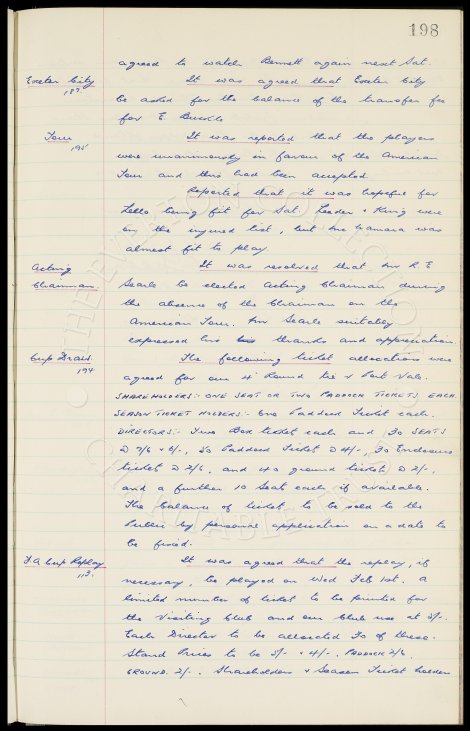 198
agreed to watch Bennett again next Sat.
Exeter City It was agreed that Exeter City
187. be asked for the balance of the transfer fee
for E. Buckle
Tour It was reported that the players
195 were unanimously in favour of the American
Tour and this had been accepted
Reported that it was hopeful for
Lello being fit for Sat. Leeder & King were
on the injured list, but McNamara was
almost fit to play.
Acting It was resolved that Mr R. E
Chairman. Searle be elected Acting Chairman during
the absence of the Chairman on the
American Tour. Mr Searle suitably
expressed his thanks and appreciation.
Cup Draw. The following ticket allocations were
194 agreed for our 4th Round tie v Port Vale.
SHAREHOLDERS:- ONE SEAT OR TWO PADDOCK TICKETS EACH.
SEASON TICKET HOLDERS:- One Paddock Ticket each.
DIRECTORS:- Two Box tickets each and 30 SEATS
@ 7/6 & 6/-, 50 Paddock Tickets @ 4/-, 30 Enclosure
tickets @ 2/6, and 40 ground tickets @ 2/-,
and a further 10 Seats each if available.
The balance of tickets to be sold to the
Public by personal application on a date to
be fixed.
F.A Cup Replay It was agreed that the replay, if
113. necessary, be played on Wed Feb 1st. A
limited number of tickets to be printed for
the Visiting Club and our Club use at 5/-.
Each Director to be allocated 30 of these.
Stand Prices to be 5/- & 4/-, PADDOCK 2/6
GROUND 2/-. Shareholders & Season Ticket holders
THE EVERTON COLLECTION
CHARITABLE TRUST